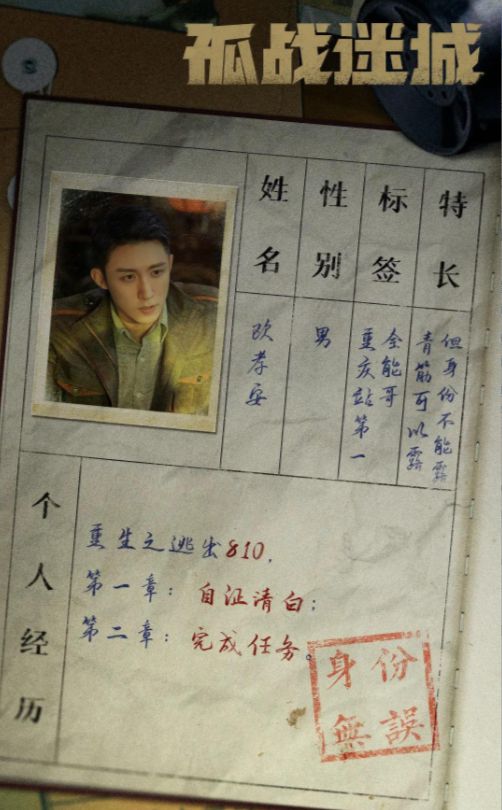 孤战迷城
姓名
欧孝安
性别
男
标签
重庆站第一
全能哥
特长
青筋可以露
但身份不能露
个人经历
重生之逃出810，
第一章：自证清白；
第二章：完成任务。
身份
無誤